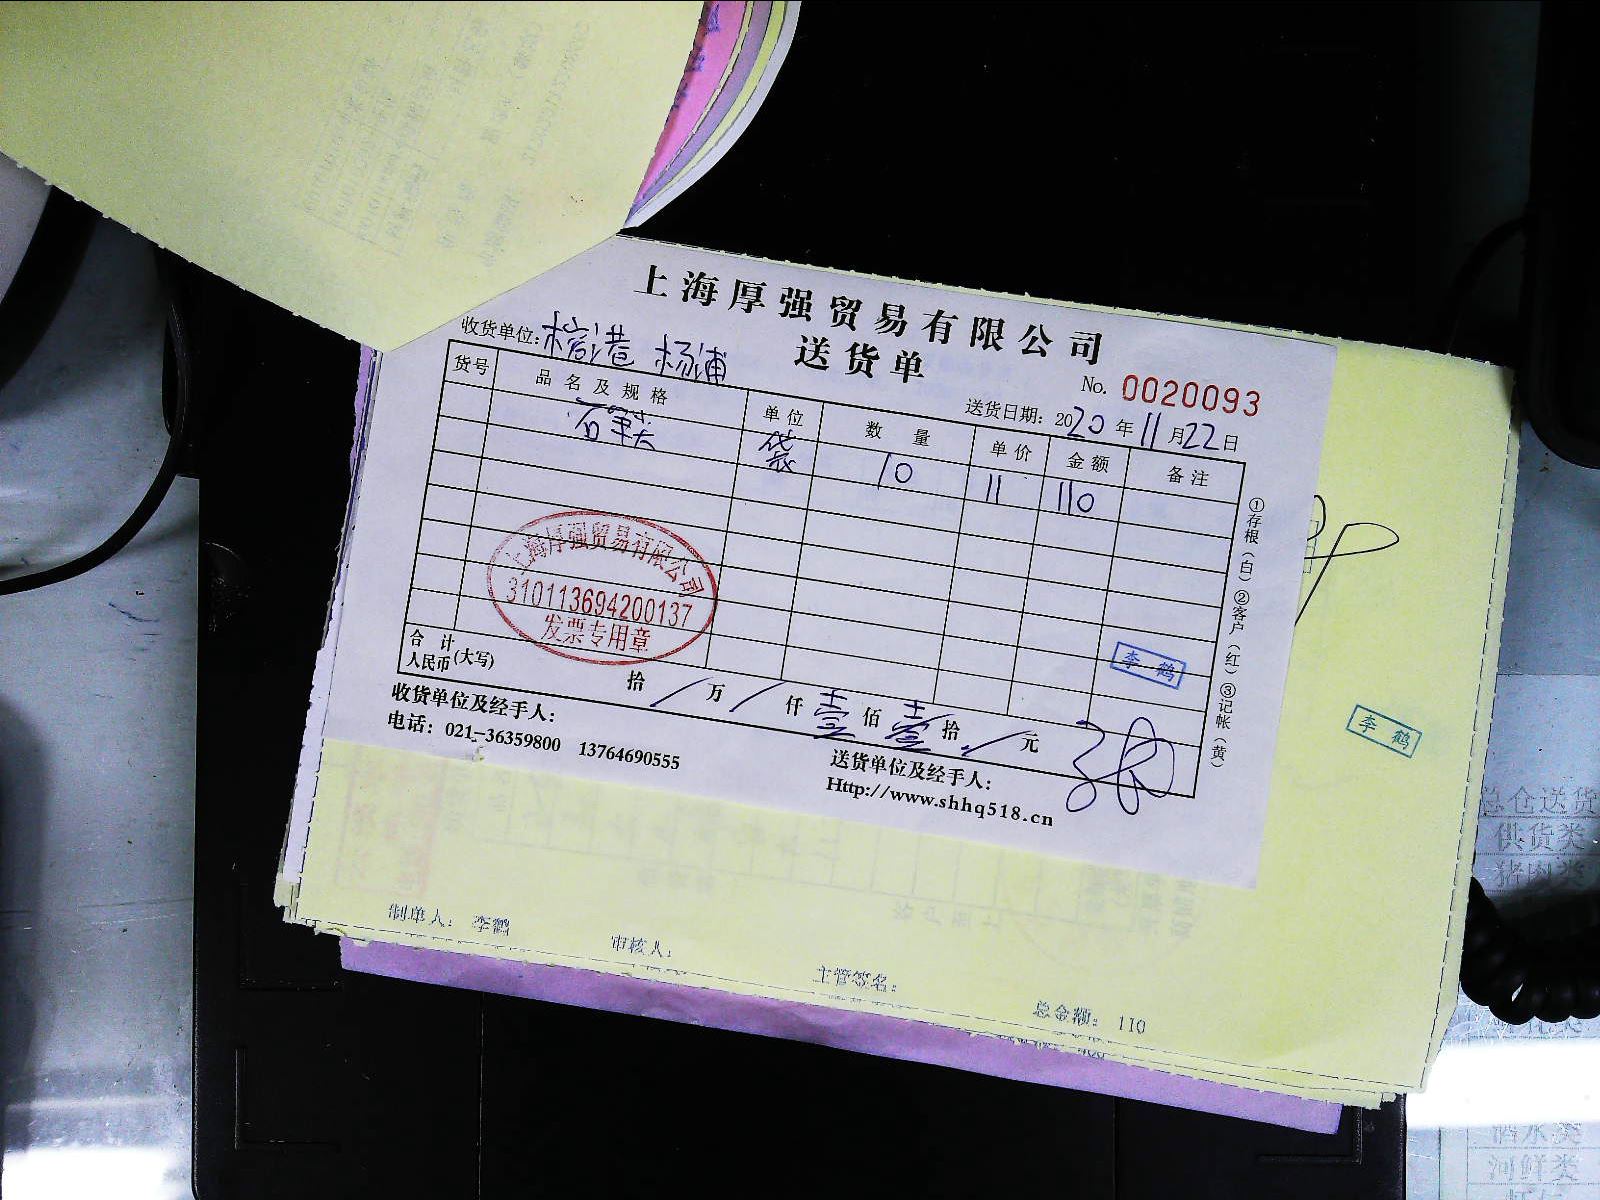 上海厚强贸易有限公司
送货单
收货单位: 榕港 杨浦
No. 0020093
送货日期: 2020年11月22日
货号 品名及规格 单位 数量 单价 金额 备注
袋 10 11 110
上海厚强贸易有限公司
310113694200137
发票专用章
李鹤
合计人民币(大写) 拾/万/仟壹佰壹拾/元
①存根(白) ②客户(红) ③记帐(黄)
收货单位及经手人:
电话: 021-36359800 13764690555
送货单位及经手人:
Http://www.shhq518.cn
李鹤
制单人: 李鹤
审核人:
主管签名:
总金额: 110
总仓送货
供货类
猪肉类
酒水类
河鲜类